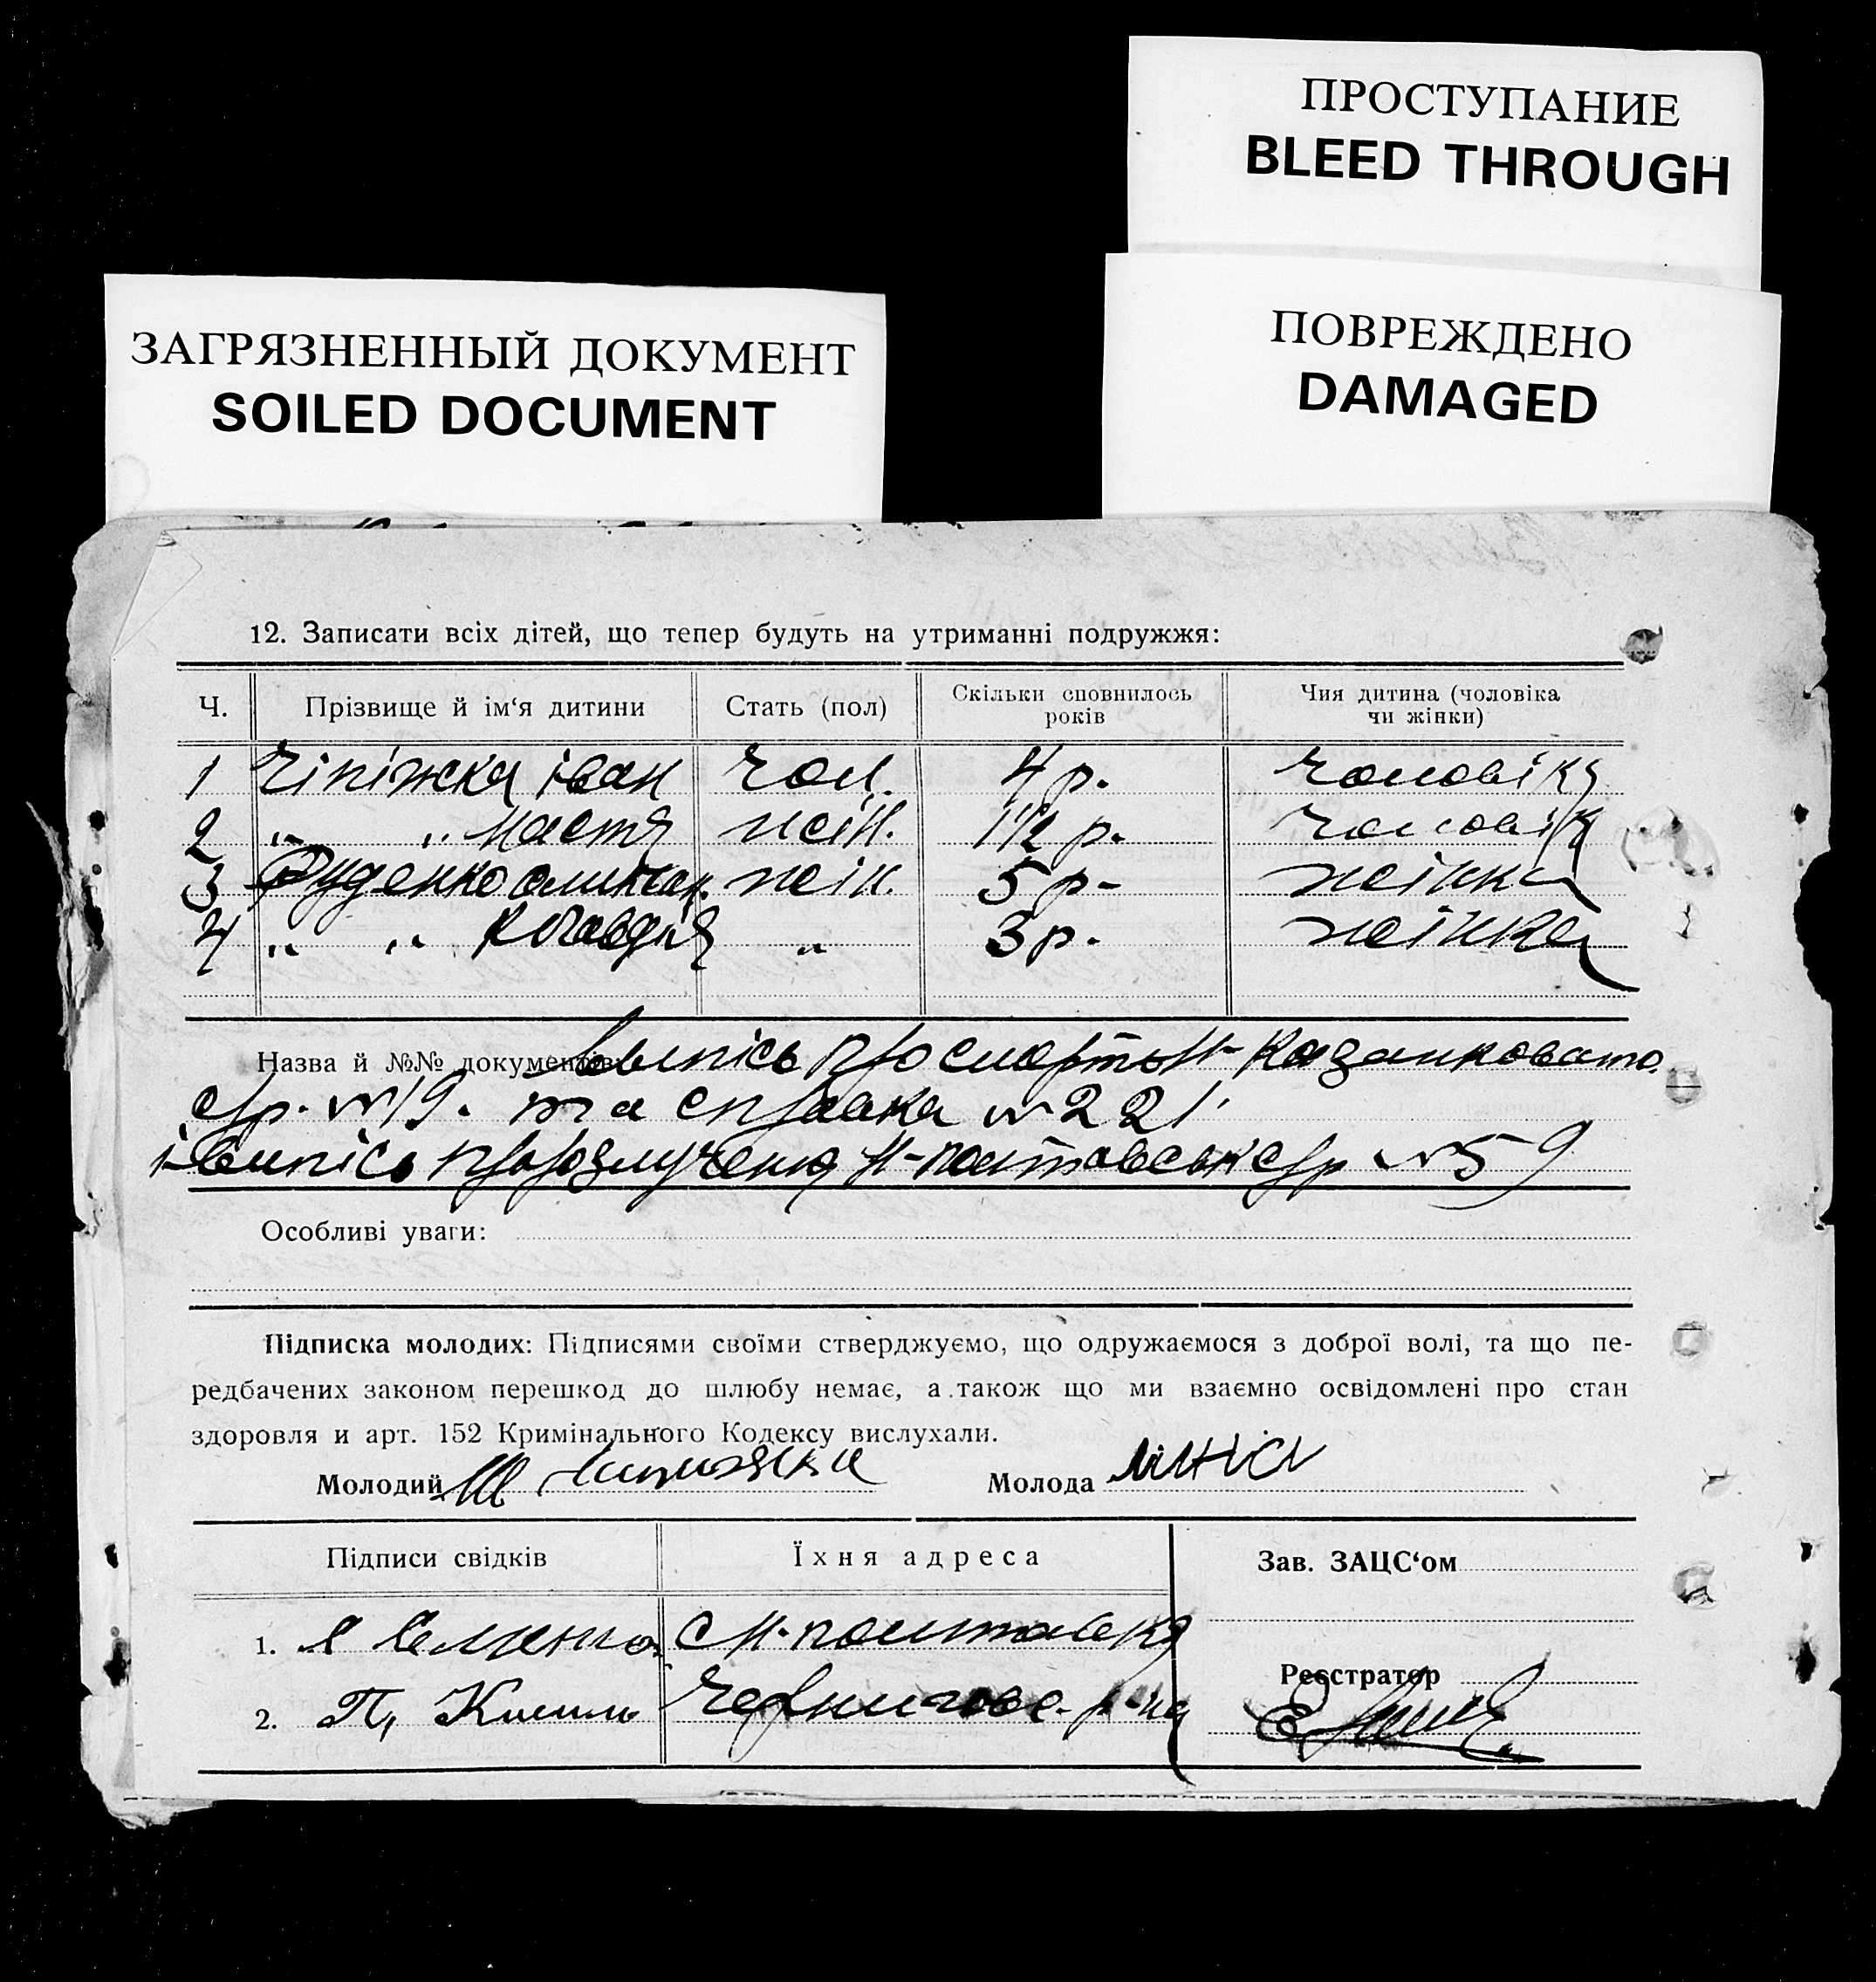 ПРОСТУПАНИЕ
BLEED THROUGH
ПОВРЕЖДЕНО
DAMAGED
ЗАГРЯЗНЕННЫЙ ДОКУМЕНТ
SOILED DOCUMENT
12. Записати всіх дітей, що тепер будуть на утриманні подружжя:
Ч. Прізвище й ім‘я дитини Стать (пол) Скільки сповнилось років Чия дитина (чоловіка чи жінки)
1 Чіпіжка іван чол. 4 р. чоловіка
2 „ „ настя жін. 1 1/2 р. чоловіка
3 Руденко жін. 5 р- жінка
4 „ „ „ 3 р. жінка
Назва й №№ документів: випісь про смерть Н-
ср. №19. та справка №221
і випісь про розлучення Н- ср №59
Особливі уваги:
Підписка молодих: Підписями своїми стверджуємо, що одружаємося з доброї волі, та що пе-
редбачених законом перешкод до шлюбу немає, а також що ми взаємно освідомлені про стан
здоровля и арт. 152 Кримінального Кодексу вислухали.
Молодий Молода
Підписи свідків Їхня адреса Зав. ЗАЦС‘ом
1. с Н-полтавка
Реєстратор
2. П, р-на